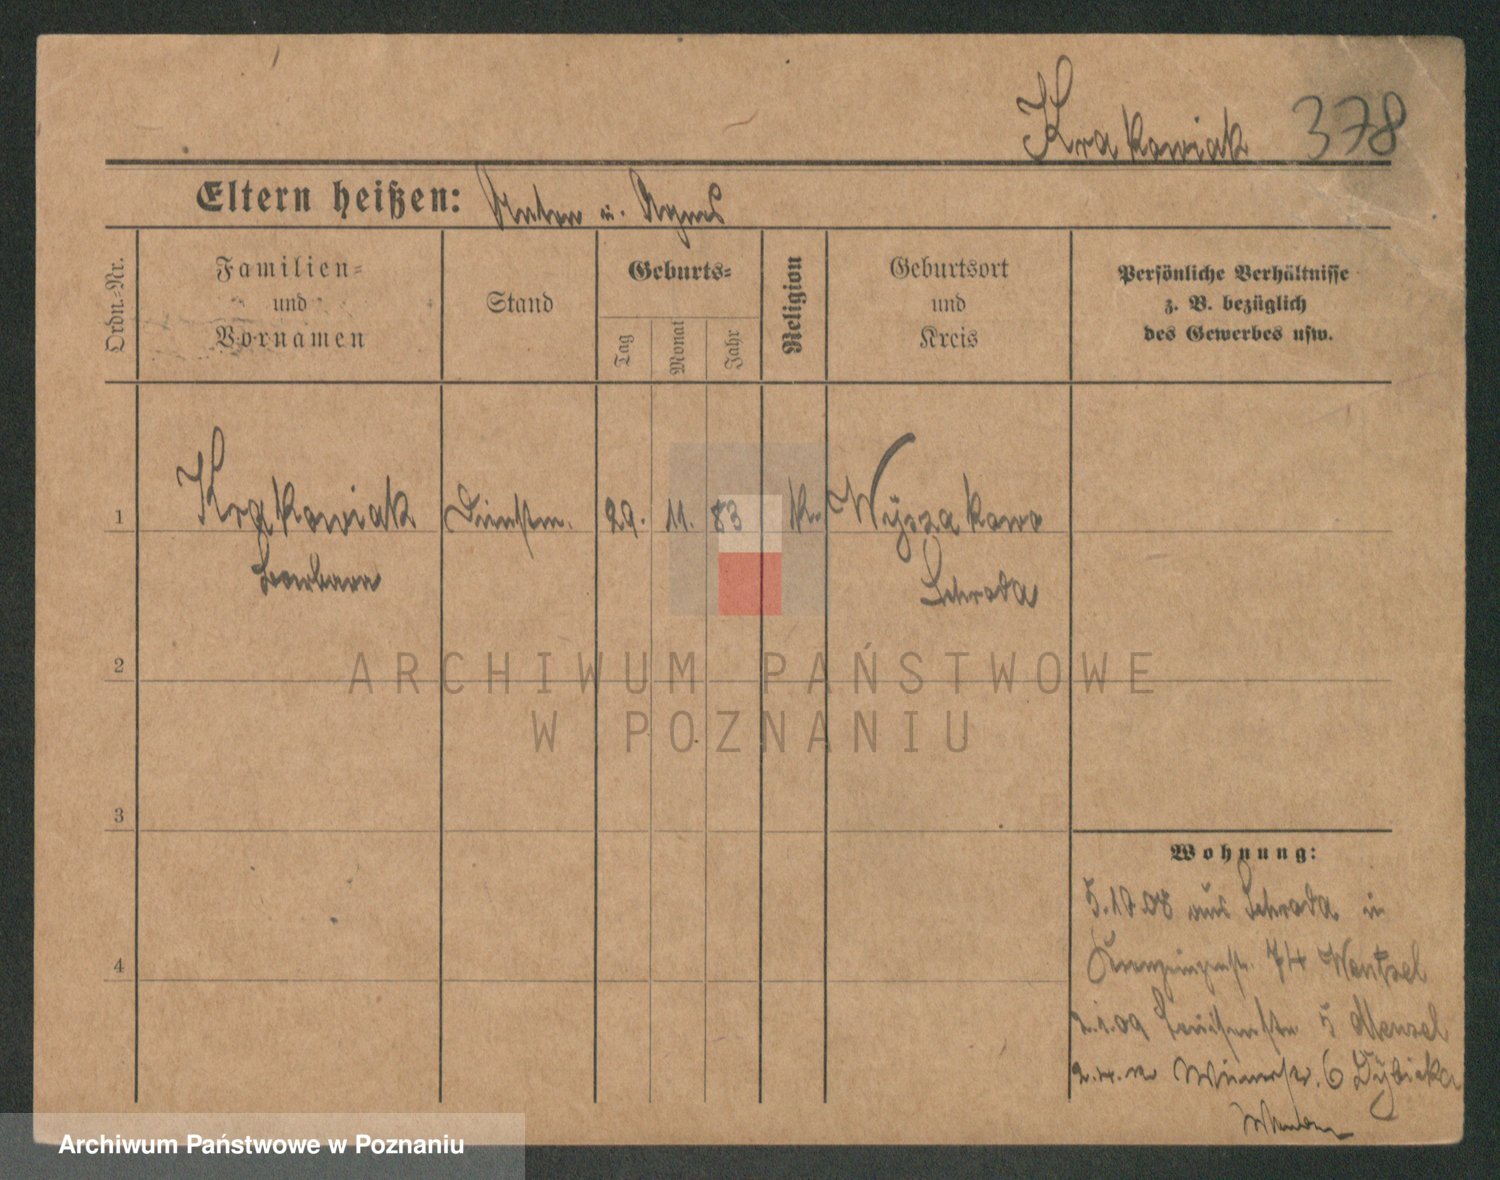 Krakowiak 378
Eltern heißen: Anton u. Agnes
Ordn.-Nr.
Familien-
und
Vornamen
Stand
Geburts-
Tag
Monat
Jahr
Religion
Geburtsort
und
Kreis
Persönliche Verhältnisse
z. B. bezüglich
des Gewerbes usw.
1 Krakowiak Dienstm. 29. 11. 83 K. Wyszakowo
Barbara Schroda
2
3
4
Wohnung:
5.10.08 aus Schroda in
Kronprinzenstr. 74 Wentzel
2.1.09 Louisenstr. 5 Menzel
Wienerstr. 6 Dybicka
ARCHIWUM PAŃSTWOWE
W POZNANIU
Archiwum Państwowe w Poznaniu